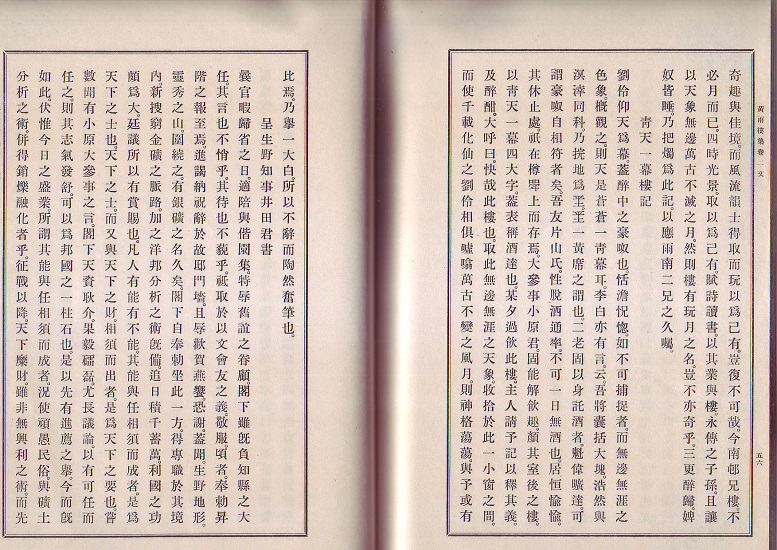 黃雨樓集卷二 文
五六
奇趣與佳境。而風流韻士得取而玩以爲己有。豈復不可哉。今南邨兄樓。不
必月而已。四時光景。取以爲己有。賦詩讀書。以其業與樓。永傳之子孫。且讓
以天象無邊萬古不滅之月。然則樓有玩月之名。豈不亦奇乎。三更醉歸。婢
奴皆睡。乃把燭爲此記。以應雨南二兄之久囑。
靑天一幕樓記
劉伶仰天爲幕。蓋醉中之豪㕦也。恬澹怳惚。如不可捕捉者。而無邊無涯之
色象。概觀之。則天是蒼蒼一靑幕耳。李白亦有言。云。吾將囊括大塊。浩然與
溟涬同科。乃挠地爲一黃席之謂也。二老固以身託酒者。魁偉曠達。可
謂豪㕦自相符者矣。吾友片山氏。性脫洒通率。不可一日無酒也。居恒愉愉。
其休止處。祇在樽罍上而存焉。大參事小原君。固能解飮趣。顏其室後之樓。
以靑天一幕四大字。蓋表稱酒達也。某夕過飮此樓。主人請予記以釋其義。
及醉酣。大呼曰。快哉此樓也。取此無邊無涯之天象。收拾於此一小窗之間。
而使千載化仙之劉伶相俱噓嗡萬古不變之風月。則神格蕩蕩。與予或有
此焉。乃擧一大白。所以不辭而陶然奮筆也。
呈生野知事井田君書
義官暇歸省之日。適陪與偕園集。特辱舊誼之眷顧。閣下雖旣負知縣之大
任。其言也不惰乎。其待也不藐乎。祇取於以文會友之義。敬服。頃者。奉勅昇
階之報至焉。進謁納祝辭於故邸門墻。且辱歡賀燕饗。恐謝。蓋聞生野地形。
靈秀之山。圍繞之。有銀礦之名久矣。閣下自奉勅坐此一方。得專職於其境
內。新搜窮金礦之脈路。加之洋邦分析之術旣備。追日積千蓄萬。利國之功
頗爲大。廷議所以有賞賜也。凡人有能有不能。其能與任相須而成者。是爲
天下之士也。天下之士。而又與天下之財。相須而出者。是爲天下之要也。嘗
數聞有小原大參事之言。閣下天資耿介。果毅礌磊。尤長議論。以有可任而
任之。則其志氣發舒。可以爲邦國之一柱石也。是以先有進薦之擧。今而旣
如此。伏惟今日之盛業。所謂其能與任相須而成者。況使頑愚民俗。與礦土
分析之術。併得銷爍融化者乎。征戰以降。天下糜財。雖非無興利之術。而先